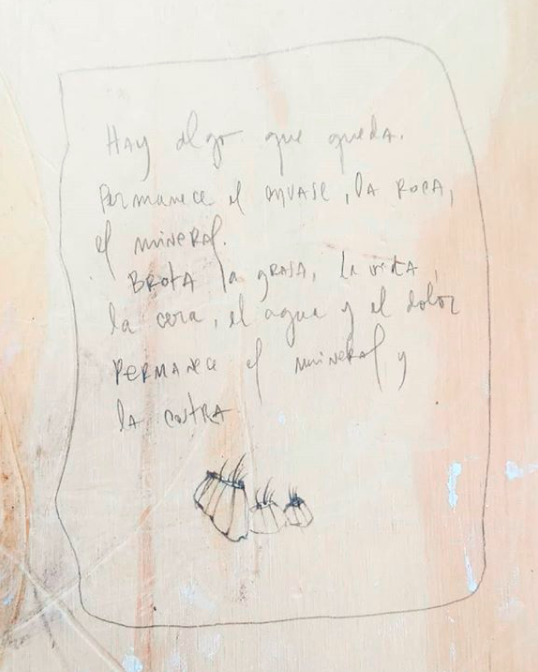 Hay algo que queda.
Permanece el envase, la roca,
el mineral.
Brota la grasa, la veta,
la cera, el agua y el dolor
Permanece el mineral y
la costra